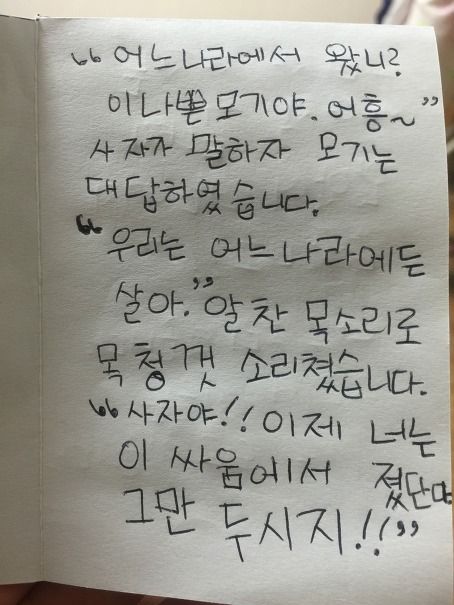 “어느나라에서 왔니?
이나쁜모기야. 어흥~”
사자가 말하자 모기는
대답하였습니다.
“우리는 어느나라에든
살아.”알찬 목소리로
목청껏 소리쳤습니다.
“사자야!! 이제 너는
이 싸움에서 졌단다
그만 두시지!!”